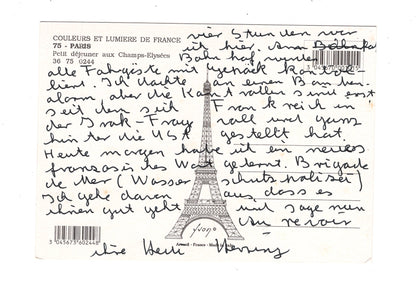 COULEURS ET LUMIERE DE FRANCE
75 - PARIS
Petit déjeuner aux Champs-Elysées
36 75 0244
vier Stunden war
ich hier. Am
Bahnhof wurden
alle Fahrgäste mit Gepäck kontrol-
liert. Ich dachte an einen Bomben-
alarm, aber die Kontrollen sind erst
seit dem sich Frankreich in
der Irak-Frage voll und ganz
hinter die USA gestellt hat.
Heute morgen habe ich ein neues
französisches Wort gelernt. Brigade
de Mer (Wasserschutzpolizei)
Ich gehe davon aus, dass es
ihnen gut geht und sage nun
Au revoir
ihre
yvon
3 045673 602448